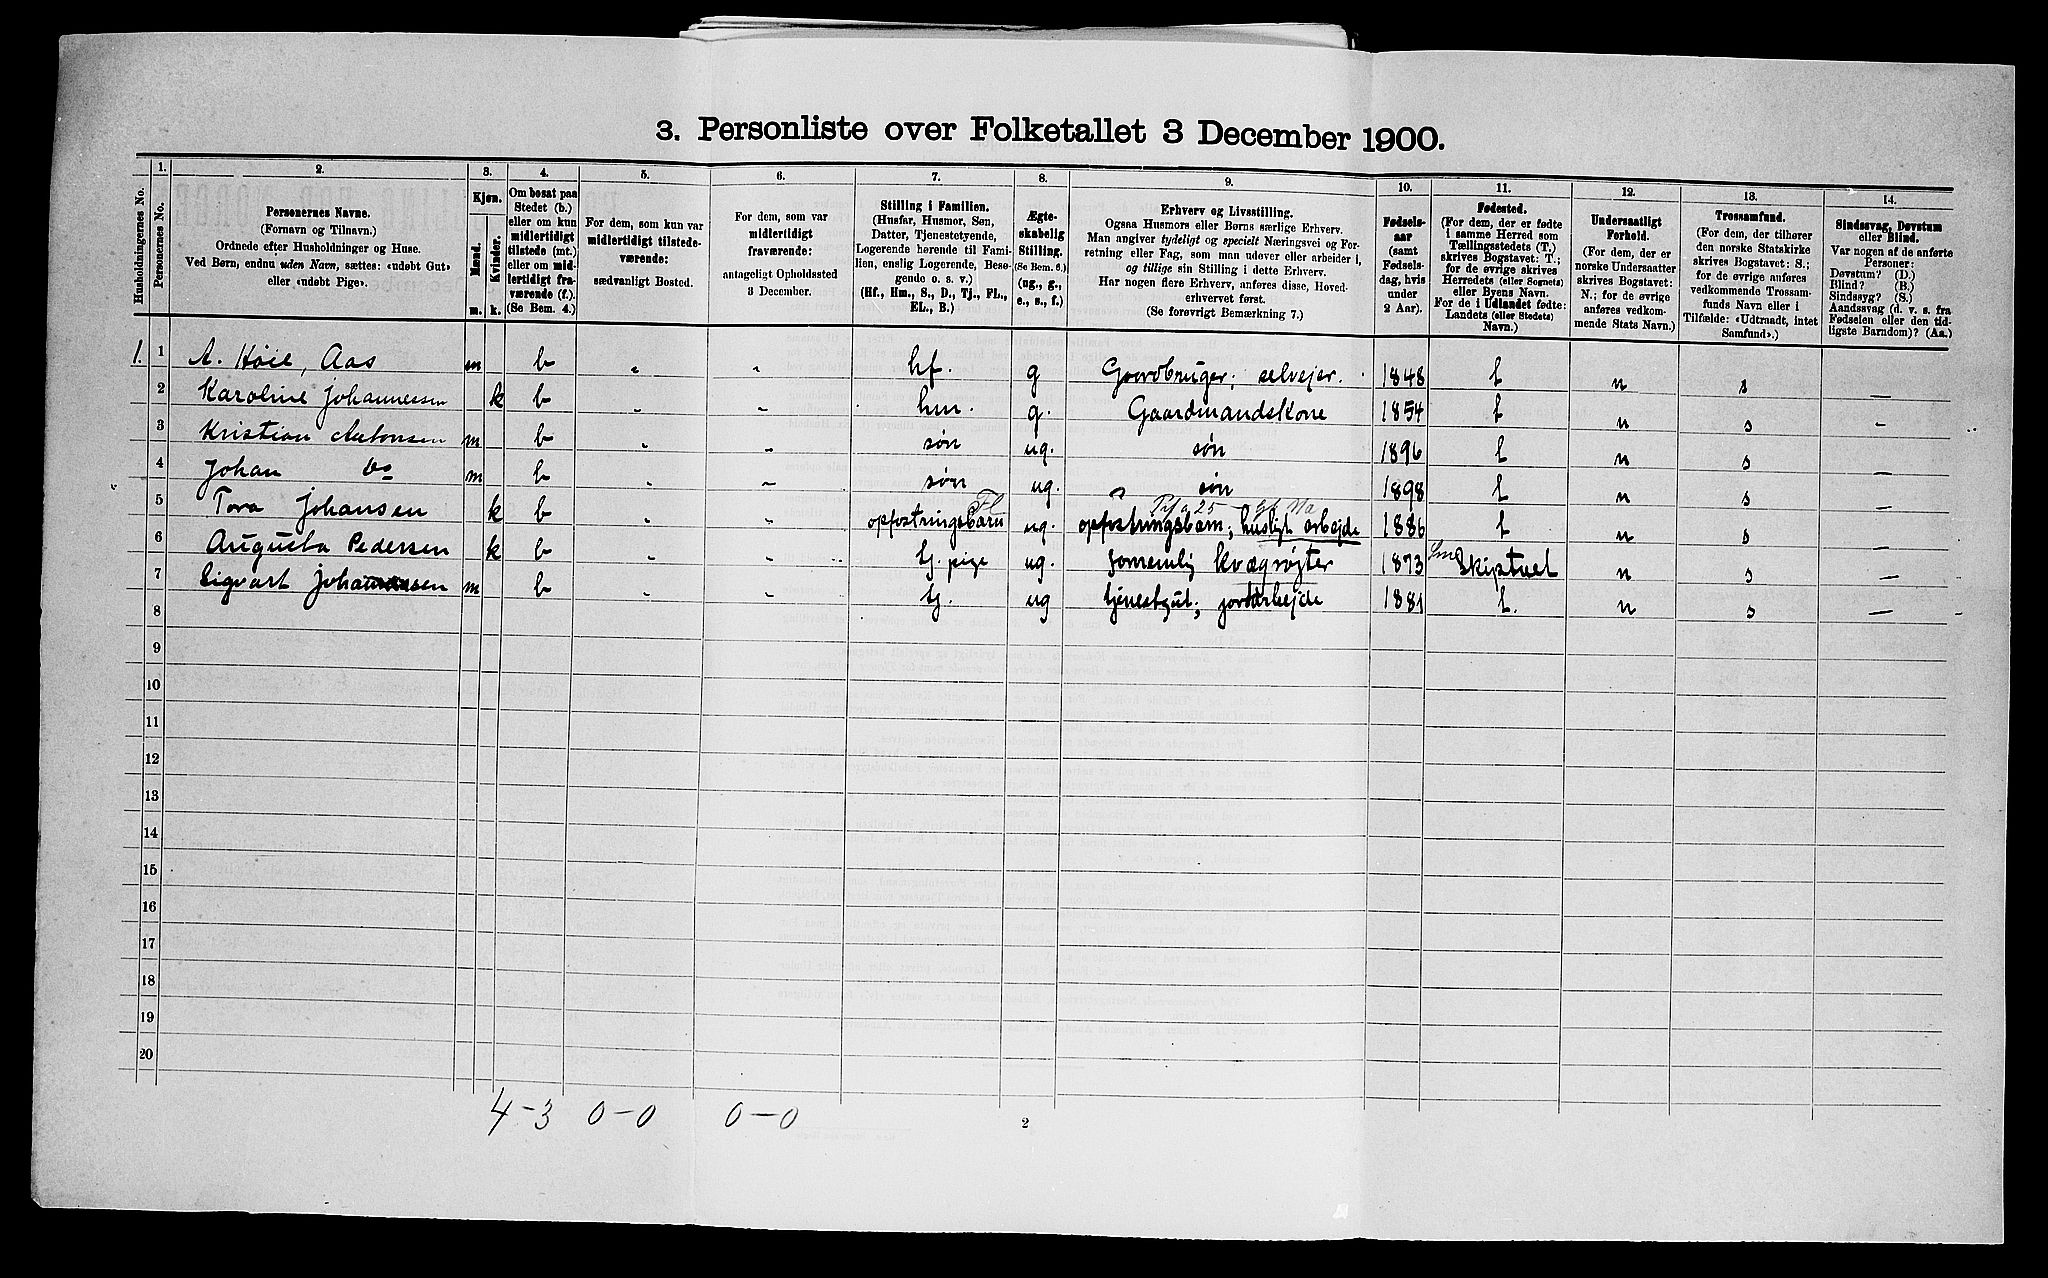 3. Personliste over Folketallet 3 December 1900.
Husholdningernes No.
1.
Personernes No.
2.
Personernes Navne.
(Fornavn og Tilnavn.)
Ordnede efter Husholdninger og Huse.
Ved Børn, endnu uden Navn, sættes: «udøbt Gut»
eller «udøbt Pige».
3.
Kjøn.
Mænd.
Kvinder.
m. k.
4.
Om bosat paa
Stedet (b.)
eller om kun
midlertidigt
tilstede (mt.)
eller om mid-
lertidigt fra-
værende (f.).
(Se Bem. 4.)
5.
For dem, som kun var
midlertidigt tilstede-
værende:
sædvanligt Bosted.
6.
For dem, som var
midlertidigt
fraværende:
antageligt Opholdssted
3 December.
7.
Stilling i Familien.
(Husfar, Husmor, Søn,
Datter, Tjenestetyende,
Logerende hørende til Fami-
lien, enslig Logerende, Besø-
gende o. s. v.)
(Hf., Hm., S., D., Tj., FL.,
EL., B.)
8.
Ægte-
skabelig
Stilling.
(Se Bem. 6.)
(ug., g.,
e., s., f.)
9.
Erhverv og Livsstilling.
Ogsaa Husmors eller Børns særlige Erhverv.
Man angiver tydeligt og specielt Næringsvei og For-
retning eller Fag, som man udøver eller arbeider i,
og tillige sin Stilling i dette Erhverv.
Har nogen flere Erhverv, anføres disse, Hoved-
erhvervet først.
(Se forøvrigt Bemærkning 7.)
10.
Fødsels-
aar
(samt
Fødsels-
dag, hvis
under
2 Aar).
11.
Fødested.
(For dem, der er fødte
i samme Herred som
Tællingsstedets (T.)
skrives Bogstavet: T.;
for de øvrige skrives
Herredets (eller Sognets)
eller Byens Navn.
For de i Udlandet fødte:
Landets (eller Stedets)
Navn.)
12.
Undersaatligt
Forhold.
(For dem, der er
norske Undersaatter
skrives Bogstavet:
N.; for de øvrige
anføres vedkom-
mende Stats Navn.)
13.
Trossamfund.
(For dem, der tilhører
den norske Statskirke
skrives Bogstavet: S.;
for de øvrige anføres
vedkommende Trossam-
funds Navn eller i
Tilfælde: «Udtraadt, intet
Samfund».)
14.
Sindssvag, Døvstum
eller Blind.
Var nogen af de anførte
Personer:
Døvstum? (D.)
Blind? (B.)
Sindssyg? (S.)
Aandssvag (d. v. s. fra
Fødselen eller den tid-
ligste Barndom)? (Aa.)
1. 1 A. Höie, Aas m b " " hf. g Gaardbruger; selvejer. 1848 t n s —
2 Karoline Johannessen k b " " hm. g. Gaardmandskone 1854 t n s —
3 Kristian Antonsen m b " " søn ug. søn 1896 t n s —
4 Johan Do m b " " søn ug. søn 1898 t n s —
5 Tora Johansen k b " " opfostringsbarn Fl ug. opfostringsbarn; husligt arbejde 1886 t n s —
6 Augusta Pedersen k b " " tj. pige ug. kvægrøgter 1873 Skiptuet n s —
7 Sigvart Johannessen m b " " tj. ug tjenestgut; jordarbejde 1881 t. n s —
8
9
10
11
12
13
14
15
16
17
18
19
20
4-3 0-0 0-0
2